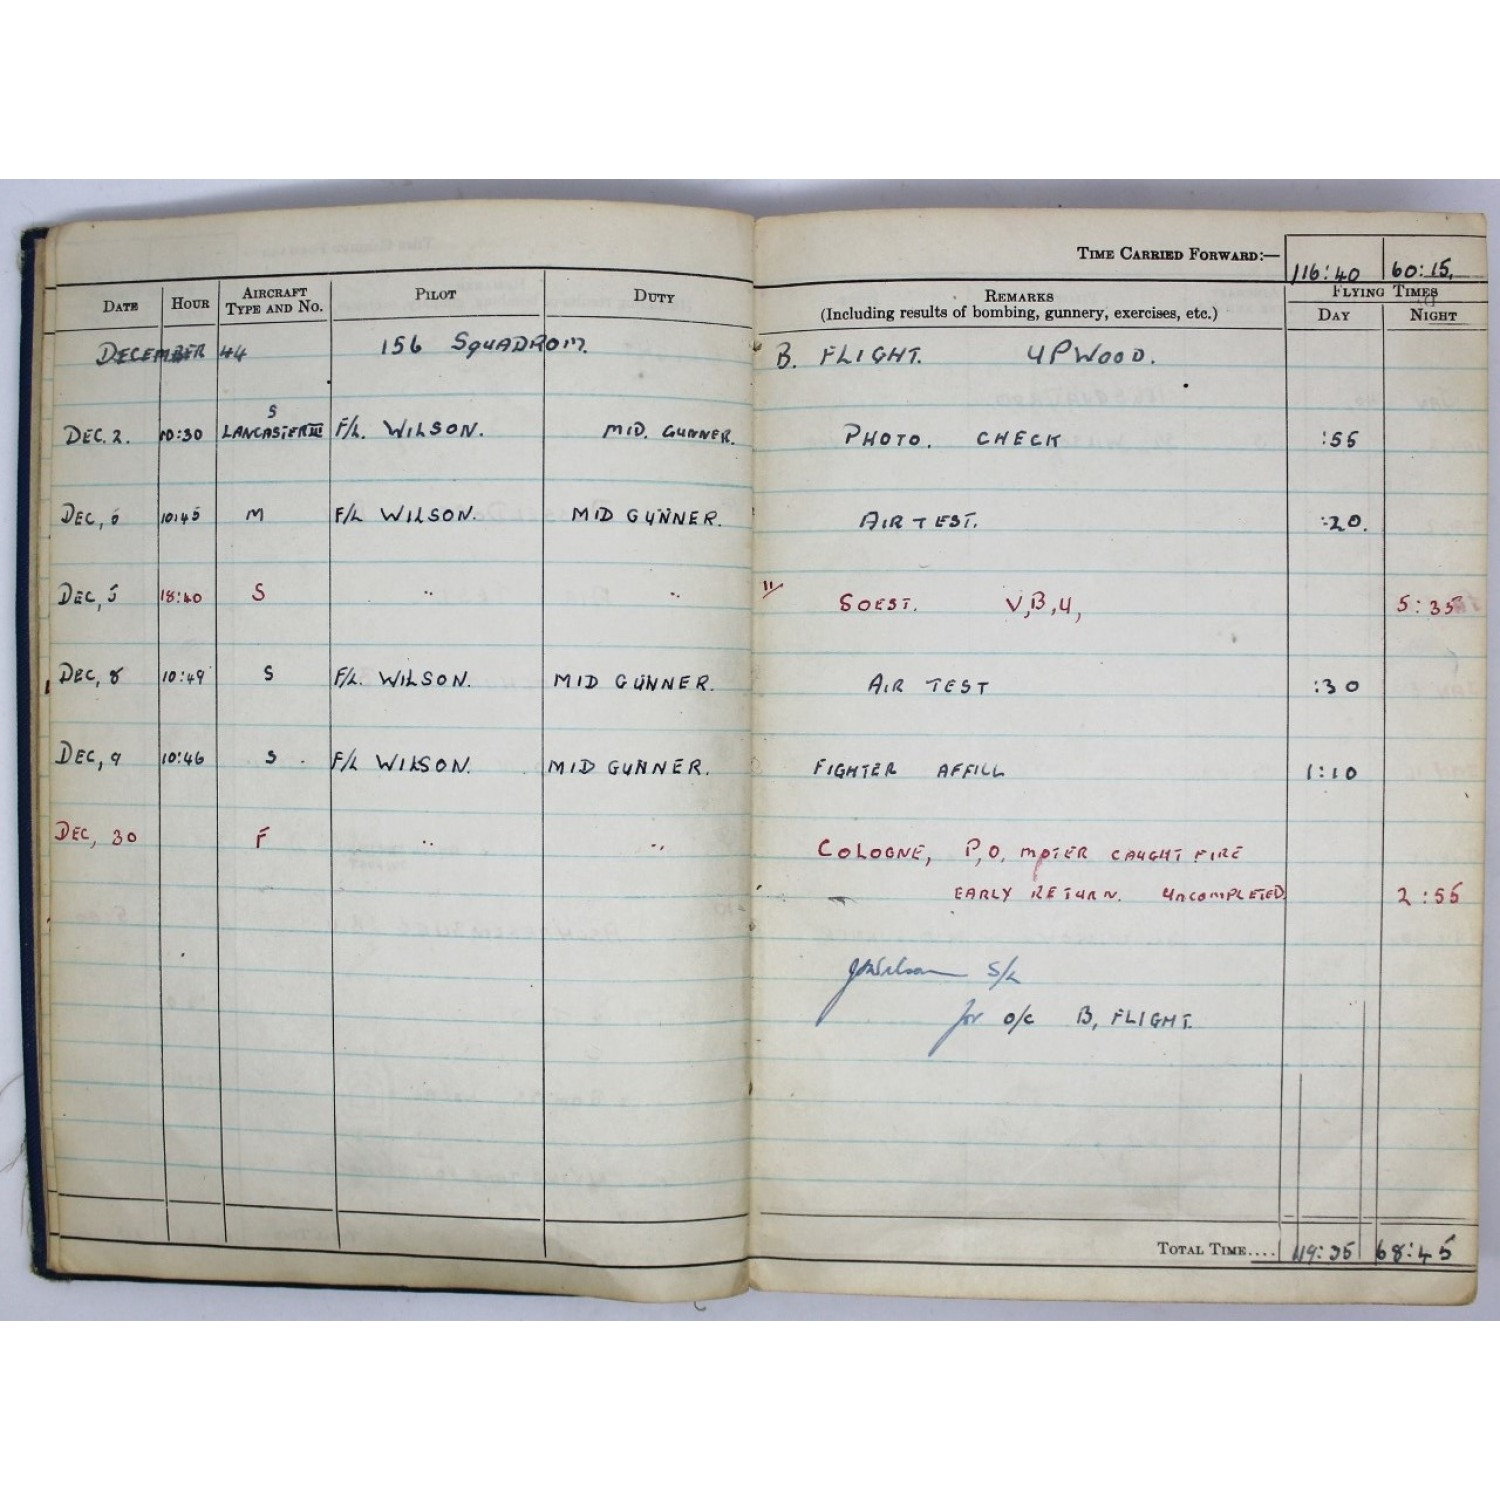 TIME CARRIED FORWARD:— 116:40 60:15.
DATE HOUR AIRCRAFT TYPE AND NO. PILOT DUTY REMARKS (Including results of bombing, gunnery, exercises, etc.) FLYING TIMES DAY NIGHT
DECEMBER 44 156 SQUADROM. B. FLIGHT. UPWOOD.
DEC. 2. 10:30 S LANCASTER III F/L. WILSON. MID. GUNNER. PHOTO. CHECK :55
DEC, 10:45 M F/L WILSON. MID GUNNER. AIR TEST. :20.
DEC, 5 18:40 S " " 11 SOEST. V,B,U, 5:35
DEC, 8 10:49 S F/L. WILSON. MID GUNNER. AIR TEST :30
DEC, 9 10:46 S . F/L WILSON. MID GUNNER. FIGHTER AFFILL 1:10
DEC, 30 F " " COLOGNE, P,O, MOTER CAUGHT FIRE
EARLY RETURN. UNCOMPLETED 2:55
Wilson S/L
for O/C B, FLIGHT.
TOTAL TIME.... 119:35 68:45